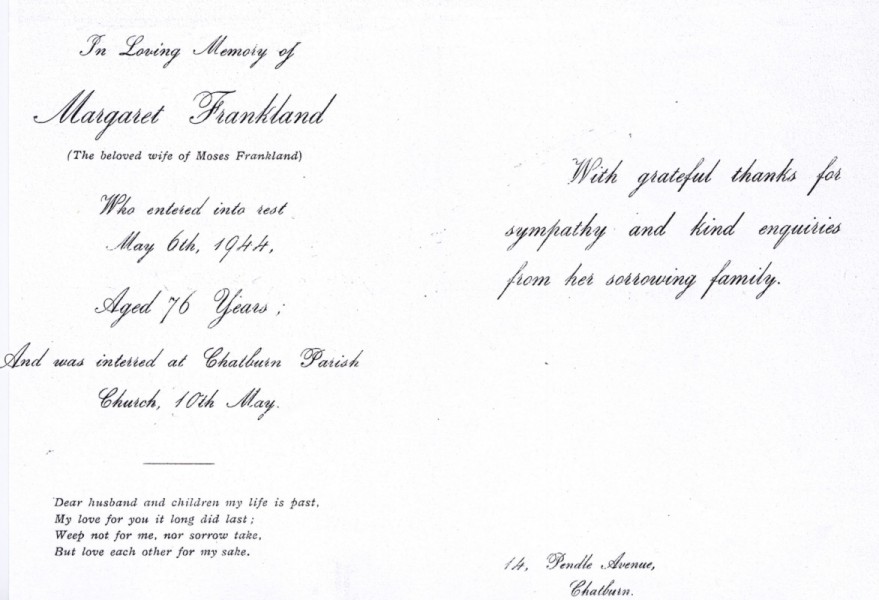 In Loving Memory of
Margaret Frankland
(The beloved wife of Moses Frankland)
Who entered into rest
May 6th, 1944,
Aged 76 Years ;
And was interred at Chatburn Parish
Church, 10th May.
Dear husband and children my life is past,
My love for you it long did last ;
Weep not for me, nor sorrow take,
But love each other for my sake.
With grateful thanks for
sympathy and kind enquiries
from her sorrowing family.
14, Pendle Avenue,
Chatburn.